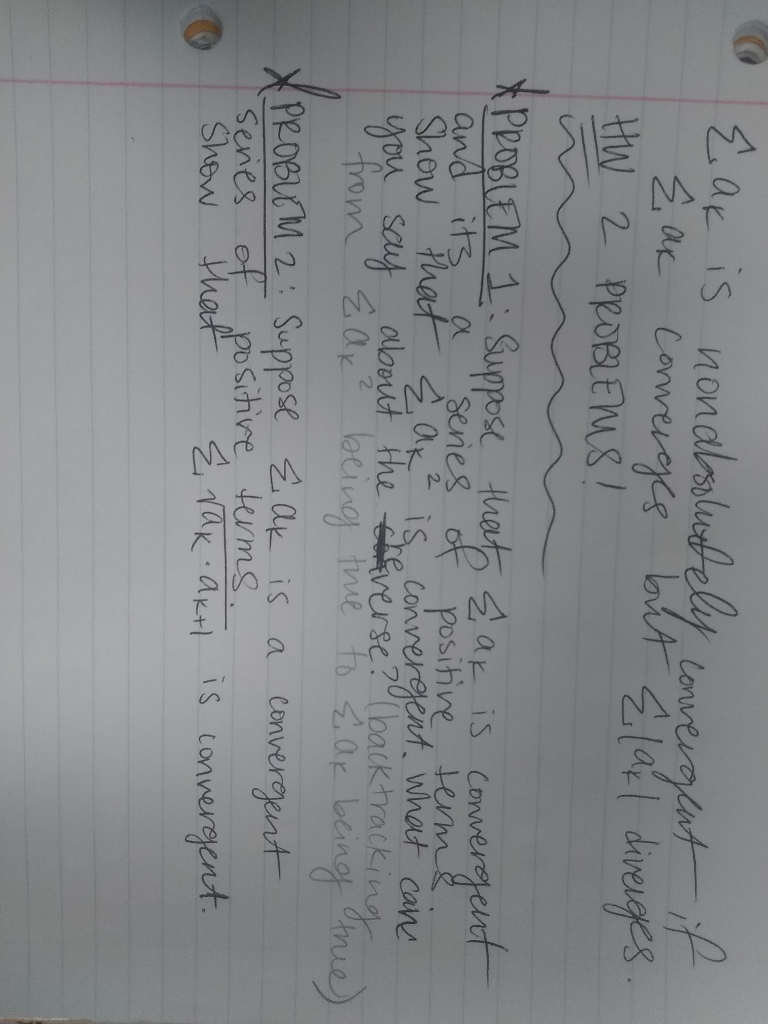 Σ aₖ is nonabsolutely convergent if
Σ aₖ converges but Σ|aₖ| diverges.
HW 2 PROBLEMS!
* PROBLEM 1: Suppose that Σ aₖ is convergent
and its a series of positive terms
Show that Σ aₖ² is convergent. What can
you say about the converse? (backtracking
from Σ aₖ² being true to Σ aₖ being true)
* PROBLEM 2: Suppose Σ aₖ is a convergent
series of positive terms.
Show that Σ √(aₖ · aₖ₊₁) is convergent.